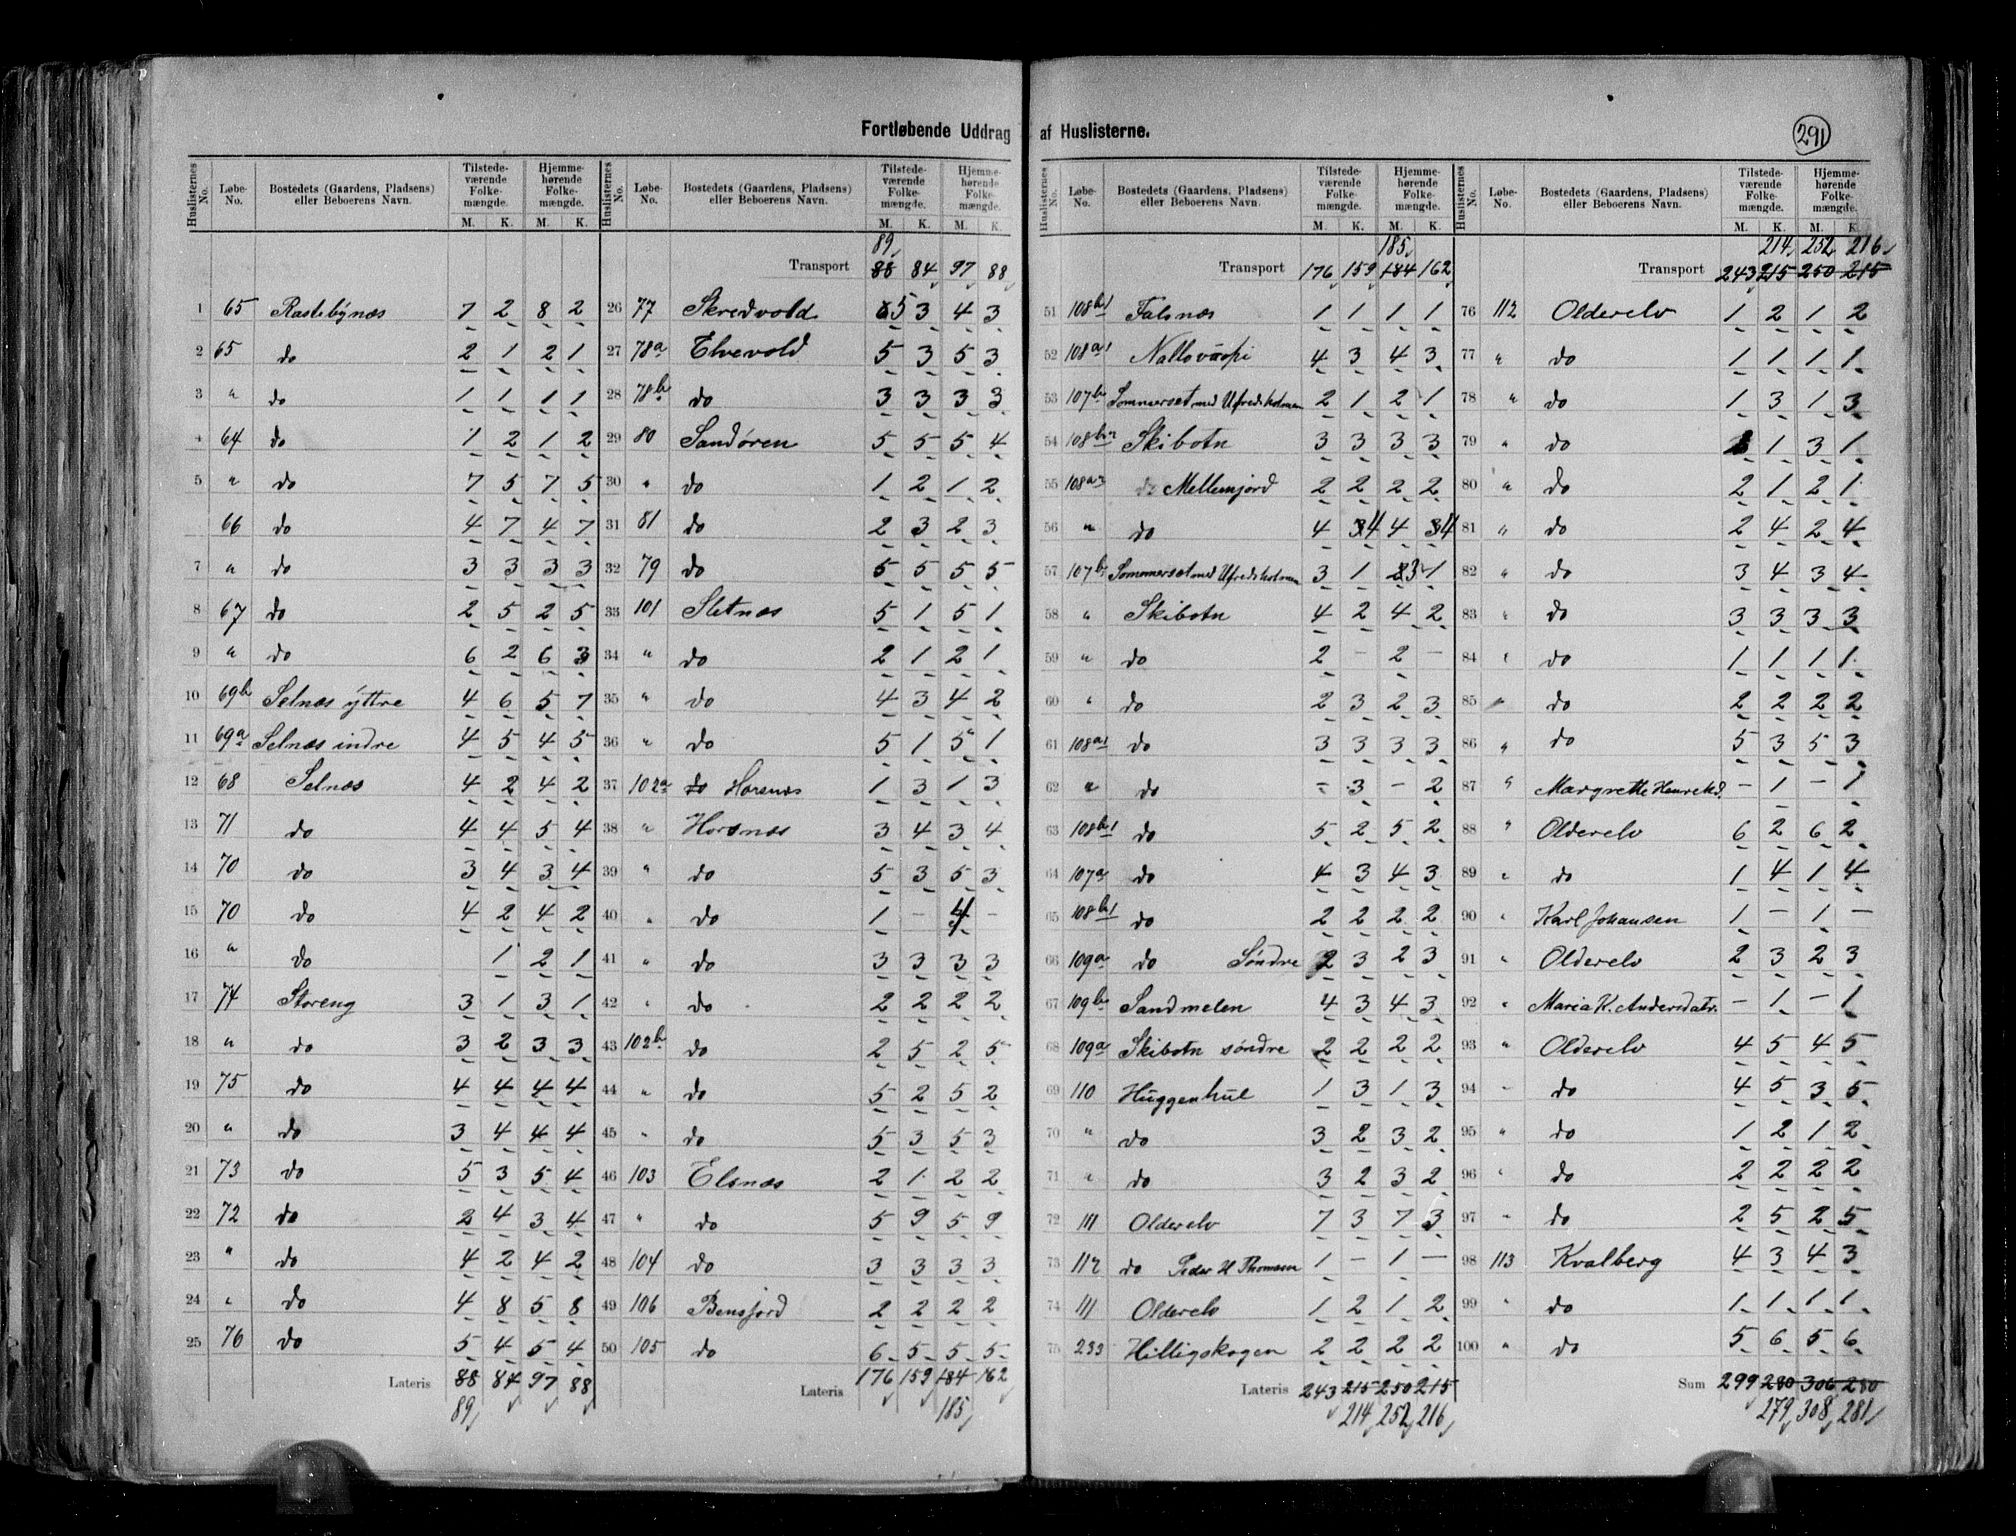 Fortløbende Uddrag af Huslisterne.
291
Huslisternes No. Løbe-No. Bostedets (Gaardens, Pladsens) eller Beboerens Navn. Tilstedeværende Folkemængde. M. K. Hjemmehørende Folkemængde. M. K.
1 65 Rastebynæs 7 2 8 2
2 65 do 2 1 2 1
3 " do 1 1 1 1
4 64 do 1 2 1 2
5 " do 7 5 7 5
66 do 4 7 4 7
7 " do 3 3 3 3
8 67 do 2 5 2 5
9 " do 6 2 6 3
10 69b Selnæs ýttre 4 6 5 7
11 69a Selnæs indre 4 5 4 5
12 68 Selnæs 4 2 4 2
13 71 do 4 4 5 4
14 70 do 3 4 3 4
15 70 do 4 2 4 2
16 " do 1 2 1
17 74 Storeng 3 1 3 1
18 " do 3 2 3 3
19 75 do 4 4 4 4
20 " do 3 4 4 4
21 73 do 5 3 5 4
22 72 do 2 4 3 4
23 " do 4 2 4 2
24 " do 4 8 5 8
25 76 do 5 4 5 4
Lateris 88 84 97 88
89
Huslisternes No. Løbe-No. Bostedets (Gaardens, Pladsens) eller Beboerens Navn. Tilstedeværende Folkemængde. M. K. Hjemmehørende Folkemængde. M. K.
89
Transport 88 84 97 88
26 77 Skredvold 5 3 4 3
27 78a Elvevold 5 3 5 3
28 78b do 3 3 3 3
29 80 Sandøren 5 5 5 4
30 " do 1 2 1 2
31 81 do 2 3 2 3
32 79 do 5 5 5 5
33 101 Sletnæs 5 1 5 1
34 " do 2 1 2 1
35 " do 4 3 4 2
36 " do 5 1 5 1
37 102a do Horsnæs 1 3 1 3
38 " Horsnæs 3 4 3 4
39 " do 5 3 5 3
40 " do 1 - -
41 " do 3 3 3 3
42 " do 2 2 2 2
43 102b do 2 5 2 5
44 " do 5 2 5 2
45 " do 5 3 5 3
46 103 Elsnæs 2 1 2 2
47 " do 5 9 5 9
48 104 do 3 3 3 3
49 106 Bensfjord 2 2 2 2
50 105 do 6 5 5 5
Lateris 176 159 184 162
185
Huslisternes No. Løbe-No. Bostedets (Gaardens, Pladsens) eller Beboerens Navn. Tilstedeværende Folkemængde. M. K. Hjemmehørende Folkemængde. M. K.
185
Transport 176 159 184 162
51 108b1 Falsnæs 1 1 1 1
52 108a1 4 3 4 3
53 107b Sommerset med Ufredsholmen 2 1 2 1
54 Skibotn 3 3 3 3
55 do Mellemjord 2 2 2 2
56 " do 4 4 4 4
57 107b Sommerset med Ufredsholmen 3 1 3 1
58 " Skibotn 4 2 4 2
59 " do 2 - 2 -
60 " do 2 3 2 3
61 108a1 do 3 3 3 3
62 " do - 3 - 2
63 108b1 do 5 2 5 2
64 107a do 4 3 4 3
65 108b1 do 2 2 2 2
66 109a do Søndre 2 3 2 3
67 109b Sandmelen 4 3 4 3
68 109a Skibotn søndre 2 2 2 2
69 110 Huggenhul 1 3 1 3
70 " do 3 2 3 2
71 " do 3 2 3 2
72 111 Olderelv 7 3 7 3
73 112 do Peder H Thomsen 1 - 1 -
74 111 Olderelv 1 2 1 2
75 233 Hilligskogen 2 2 2 2
Lateris 243 215 250 215
214 252 216
Huslisternes No. Løbe-No. Bostedets (Gaardens, Pladsens) eller Beboerens Navn. Tilstedeværende Folkemængde. M. K. Hjemmehørende Folkemængde. M. K.
214 252 216
Transport 243 215 250 215
76 112 Olderelv 1 2 1 2
77 " do 1 1 1 1
78 " do 1 3 1 3
79 " do 3 1 3 1
80 " do 2 1 2 1
81 " do 2 4 2 4
82 " do 3 4 3 4
83 " do 3 3 3 3
84 " do 1 1 1 1
85 " do 2 2 2 2
86 " do 5 3 5 3
87 " Margrette Henriksd. - 1 - 1
88 " Olderelv 6 2 6 2
89 " do 1 4 1 4
90 " Karl Johansen 1 - 1 -
91 " Olderelv 2 3 2 3
92 " Maria K. Andersdatr. - 1 - 1
93 " Olderelv 4 5 4 5
94 " do 4 5 3 5
95 " do 1 2 1 2
96 " do 2 2 2 2
97 " do 2 5 2 5
98 113 Kvalberg 4 3 4 3
99 " do 1 1 1 1
100 " do 5 6 5 6
Sum 299 280 306 280
279 308 281